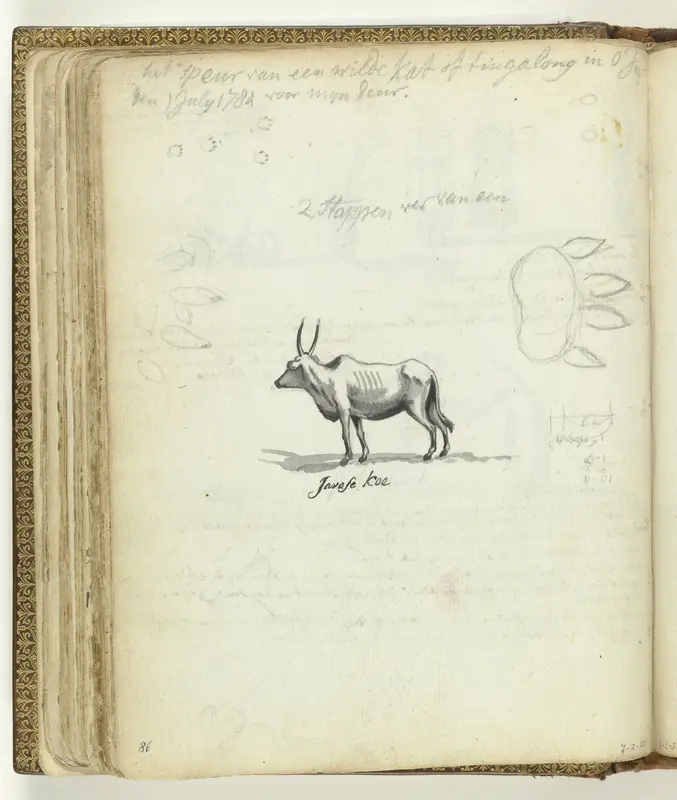 het speur van een wilde kat of tingalong in O'J
den 1 July 1784 voor mijn deur.
2 Stappen ver van een
Javase Koe
86